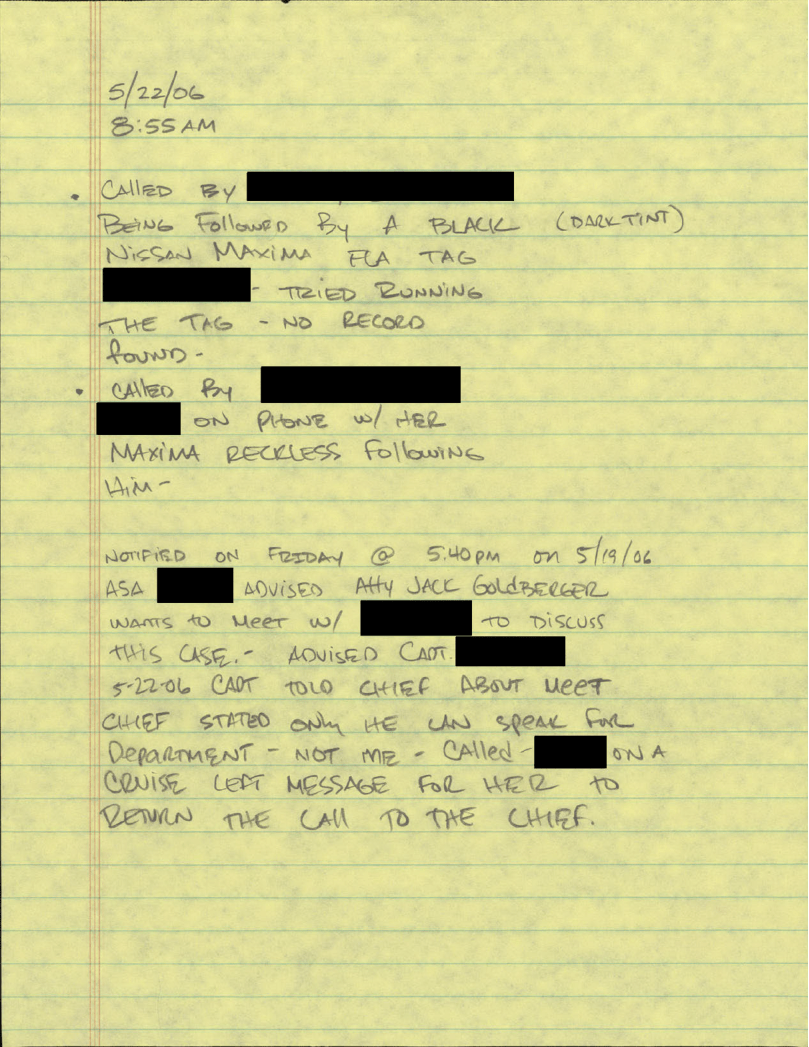 5/22/06
8:55 AM
• CAllED BY
BEING FollowED By A BLACK (DARK TINT)
NISSAN MAXIMA FLA TAG
- TRIED RUNNING
THE TAG - NO RECORD
found -
• CAllED By
ON PHONE w/ HER
MAXIMA RECKLESS Following
HIM -
NOTIFIED ON FRIDAY @ 5:40 PM on 5/19/06
ASA ADVISED Atty JACK GOLDBERGER
WANTS to MEET W/ TO DISCUSS
THIS CASE. - ADVISED CAPT.
5-22-06 CAPT TOLD CHIEF ABOUT MEET
CHIEF STATED ONly HE CAN SPEAK FOR
DEPARTMENT - NOT ME - CAlled - ON A
CRUISE LEFT MESSAGE FOR HER TO
RETURN THE CAll TO THE CHIEF.